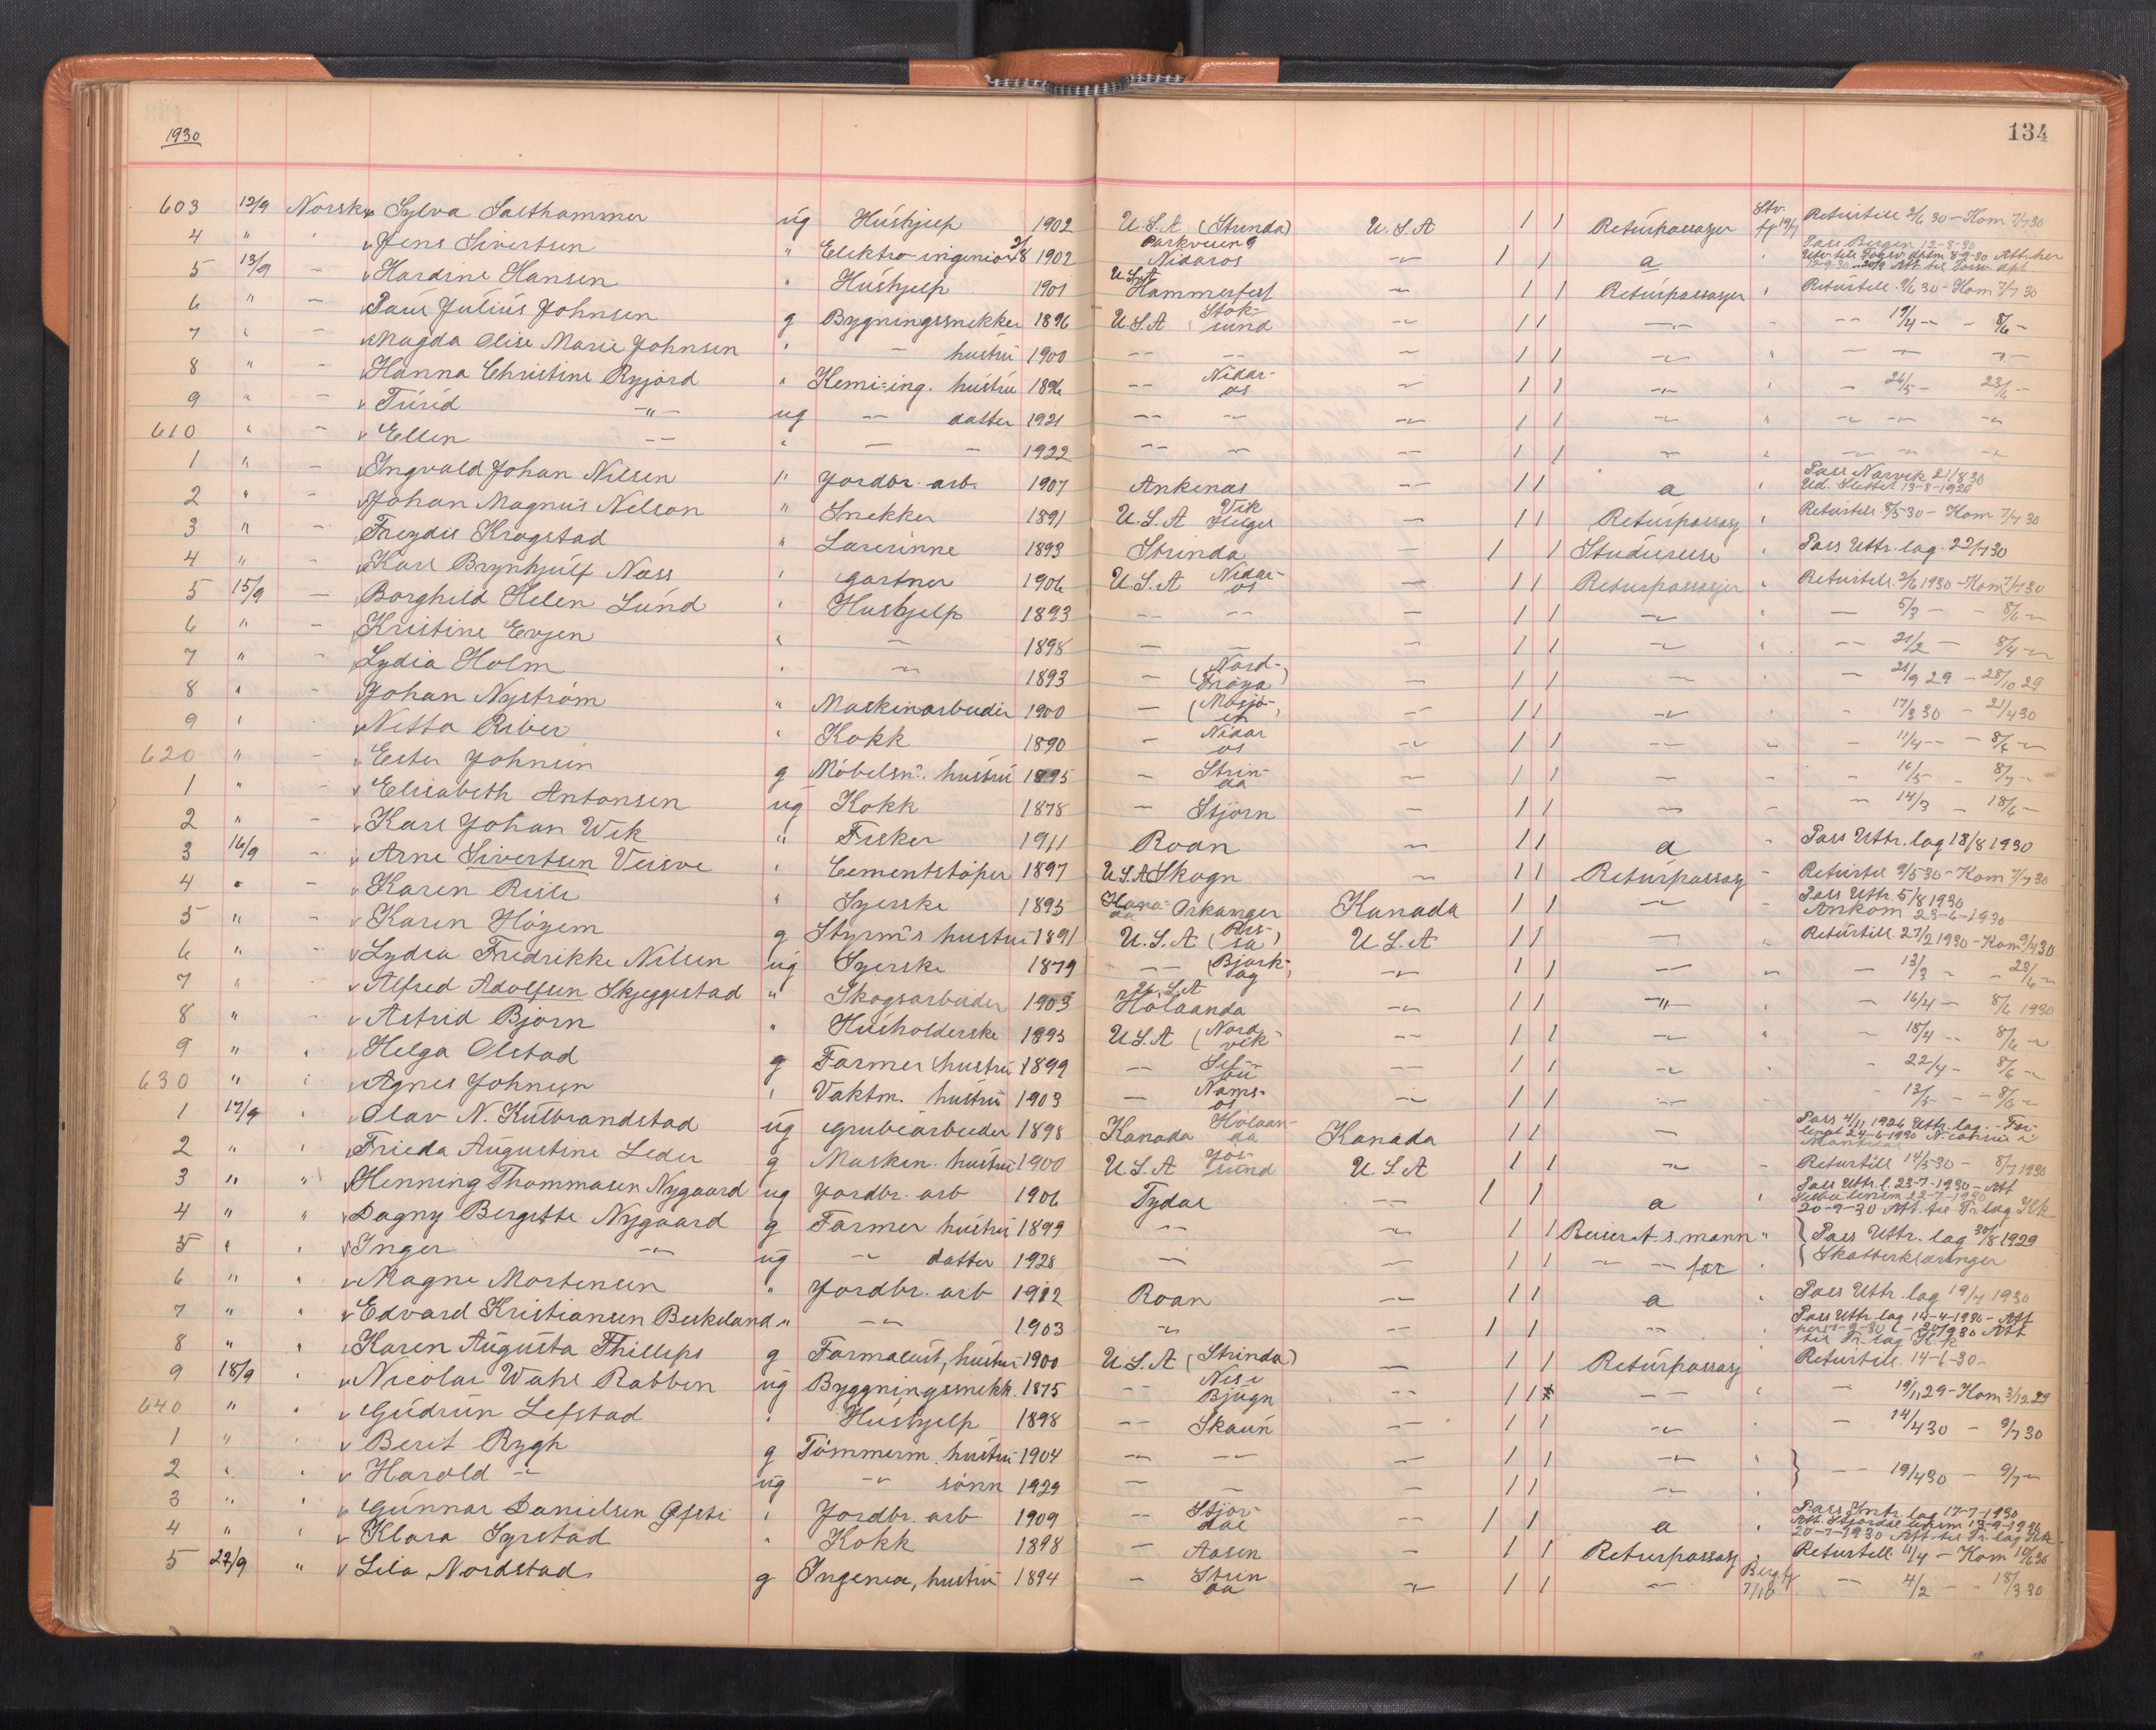 1930
134
603 12/9 Norsk Sylva Salthammer ug Hushjelp 1902 U.S.A (Strinda) U.S.A 1 1 Returpassasjer Stv. fj 19/9 Returtill 2/6 30 - Kom 7/7 30
4 " Jens Sivertsen " Elektro-ingeniør 2/8 1902 Parkveien 9 Nidaros -"- 1 1 a Pass Bergen 12-8-30
5 13/9 - Hardine Hansen " Hushjelp 1901 U.S.A Hammerfest -"- 1 1 Returpassasjer " Returtill. 9/6 30 - Kom 7/7 30
6 " - Paul Julius Johnsen g Bygningssnekker 1896 U.S.A Stoksund -"- 1 1 -"- -"- 19/4 - - 8/6 -
7 " - Magda Elise Marie Johnsen " - hustru 1900 -"- -"- - 1 1 -"- " - - -"-
8 " - Hanna Christine Ryjord " Kemi=ing. hustru 1896 -"- Nidaros -"- 1 1 -"- " - 26/5 - 23/6 -
9 " - Turid -"- ug -"- datter 1921 -"- -"- -"- 1 1 -"- " - - - -"-
610 " - Ellen -"- " - - 1922 -"- - -"- 1 1 - " - - - -"-
1 " - Ingvald Johan Nilsen " Jordbr. arb. 1907 Ankenes -"- 1 1 a " Pass Narvik 21/8 30
2 " - Johan Magnus Nelson " Snekker 1891 U.S.A Vik Helgel - 1 1 Returpassasj " Returtill. 8/5 30 - Kom 7/7 30
3 " - Freydis Krogstad " Lærerinne 1893 Strinda - 1 1 Studiereise " Pass Uttr.lag. 22/7 30
4 " - Karl Brynhjulf Næss " Gartner 1906 U.S.A Nidaros - 1 1 Returpassasjer " Returtill. 3/6 1930 - Kom 7/7 30
5 15/9 - Borghild Helen Lund " Hushjelp 1893 -"- -"- - 1 1 -"- " - 5/3 - - 8/6 -"-
6 " - Kristine Evjen " - 1898 - - - 1 1 -"- " -"- 21/2 - 8/4 -"-
7 " - Lydia Holm " -"- 1893 - (Nord-Frøya) - 1 1 - " - 21/9 29 - 28/10 29
8 " - Johan Nyström " Maskinarbeider 1900 - (Mosjøen) - 1 1 -"- " - 17/3 30 - 21/4 30
9 " . Netta Riber " Kokk 1890 - Nidaros -"- 1 1 -"- - - 11/4 - - 8/6 -"-
620 " - Ester Johnsen g Møbelsn. hustru 1895 - Strinda - 1 1 - - - 16/5 - 8/7 -"-
1 " - Elisabeth Antonsen ug Kokk 1878 - Stjørn - 1 1 -"- - - 14/3 - 18/6 -
2 " - Karl Johan Wik " Fisker 1911 Roan -"- 1 1 a - Pass Uttr.lag 18/8 1930
3 16/9 - Arne Sivertsen Veisve " Cementstøper 1897 U.S.A Skogn -"- 1 1 Returpassasj - Returtil 9/5 30 - Kom 7/7 30
4 " - Karen Risli " Syerske 1895 Kanada Orkanger Kanada 1 1 -"- - Pass Uttr 5/8 1930 Ankom 23-6-1930
5 " - Karen Høyem g Styrm.s hustru 1891 U.S.A (Rissa) U.S.A 1 1 - " Returtill. 27/2 1930 - Kom 9/4 30
6 " - Lydia Fredrikke Nilsen ug Syerske 1879 -"- (Bjørk-) -"- 1 1 -"- " - 13/3 - - 23/6 -
7 " - Alfred Adolfsen Skjeggestad " Skogsarbeider 1903 U.S.A Hølaanda -"- 1 1 -"- " - 16/4 - 8/6 1930
8 " - Astrid Bjørn " Husholderske 1893 U.S.A (Nordvik -"- 1 1 -"- " - 18/4 - 8/6 -"-
9 " " Helga Olstad g Farmer hustru 1899 -"- Selbu -"- 1 1 -"- " - 22/4 - 8/6 -"-
630 " " Agnes Johnsen " Vaktm. hustru 1903 - Namsos -"- 1 1 -"- - - 13/5 - - 8/6 -"-
1 17/9 " Olav N. Kulbrandstad ug Grubearbeider 1898 Kanada Hølaanda Kanada 1 1 - Pass 4/11 1926 Uttr.lag. - 24-6-1930
2 " " Frieda Augustine Leder g Maskin. hustru 1900 U.S.A Jøssund U.S.A 1 1 -"- - Returtill 14/5 30 - 8/7 1930
3 " " Henning Thommasen Nygaard ug Jordbr. arb 1906 Tydal -"- 1 1 a " Pass Uttr.l. 23-7-1930 - Att Selbu 22-7-1930 20-9-30 Att. til Tr.lag Kk
4 " " Dagny Bergitte Nygaard g Farmer hustru 1899 -"- -"- 1 1 Reiser t. s. mann " } Pass Uttr. lag 30/8 1929
5 " " Inger -"- ug -"- datter 1928 - -"- 1 1 - - far " Skatterklæringer
6 " " Magne Mortensen " Jordbr. arb 1912 Roan -"- 1 1 a " Pass Uttr. lag 19/7 1930
7 " " Edvard Kristiansen Bekeland " -"- 1903 -"- -"- 1 1 -"- " Pass Uttr. lag 14-4-1930 - Att
8 " " Karen Augusta Phillips g Farmaceut, hustru 1900 U.S.A (Strinda) - 1 1 Returpassasj Returtill. 14-6-30 -
9 18/9 " Nicolai Wahl Rabben ug Byggningssnekk. 1875 -"- Nes i Bjugn -"- 1 1 -"- " - 19/11 29 - Kom 3/12 29
640 " " Gudrun Lefstad " Hushjelp 1898 -"- Skaun -"- 1 1 -"- " - 14/4 30 - 9/7 30
1 " " Berit Rygh g Tømmerm. hustru 1904 -"- -"- - 1 1 -"- "
2 " " Harold -"- ug -"- sønn 1929 - - -"- 1 1 -"- " } -"- 19/4 30 - 9/7 -"-
3 " " Gunnar Danielsen Gfsti " Jordbr. arb. 1909 - Stjørdal -"- 1 1 a " Pass Inntr. lag 17-7-1930 20-9-1930 Att. til Tr.lag Kk
4 " " Klara Syrstad " Kokk 1898 - Aasen - 1 1 Returpassasj " Returtill 11/4 - Kom 10/6 30
5 22/9 " Lila Nordstad g Ingeniør, hustru 1894 - Strinda -"- 1 1 -"- Bergfj 7/10 - 4/2 - - 18/3 30